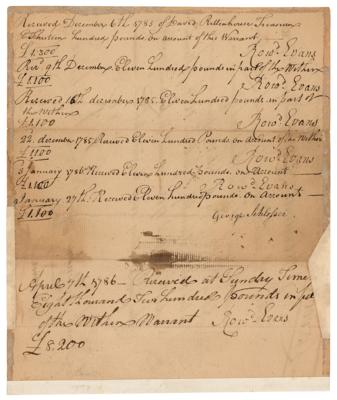 Received December 6th 1785 of David Rittenhouse Treasurer
Thirteen hundred pounds, on account of this Warrant
£1,300 Rowd. Evans
Recd. 9th December Eleven Hundred pounds in part of the Within
£1,100 Rowd. Evans
Received 16th december 1785 Eleven hundred pounds in part of
the Within
£1,100 Rowd. Evans
22 december 1785 Received Eleven Hundred Pounds on Account of the Within
£1100 Rowd. Evans
January 1786 Received Eleven hundred pounds on Account
£1,100 Rowd. Evans
January 27th Received Eleven hundred pounds on Account
£1,100
George Schlosser
April 7th 1786 Received at Sundry Times
Eight thousand Two hundred pounds in full
of the Within Warrant Rowd. Evans
£8.200